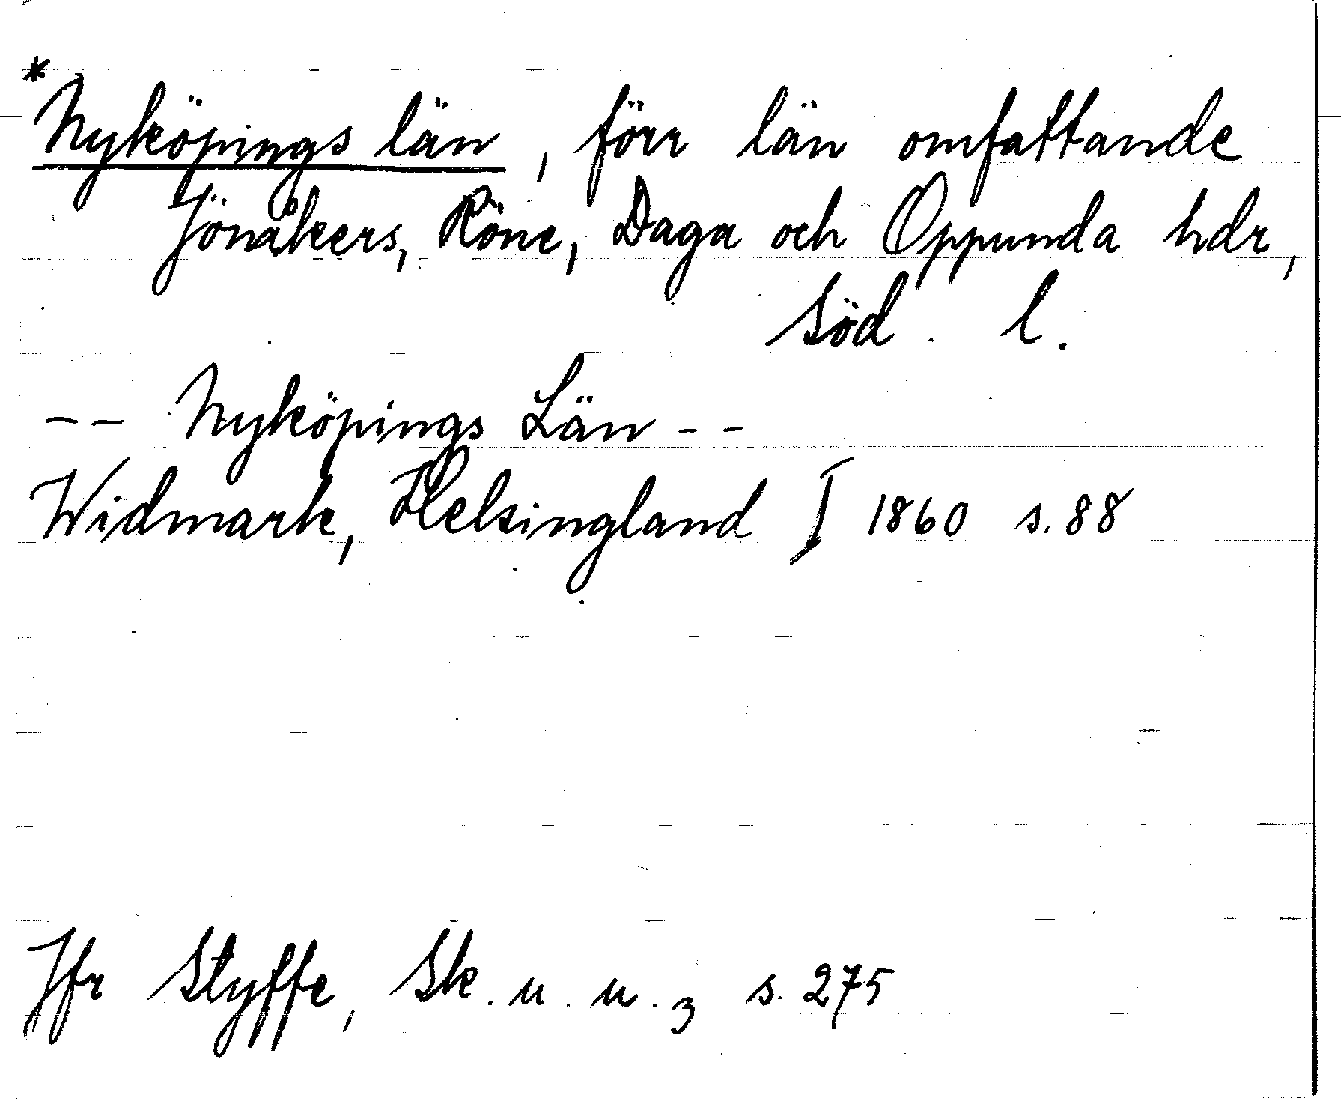 *Nyköpings län, förr län omfattande
Jönåkers, Röne, Daga och Oppunda hdr,
Söd. l.
-- Nyköpings Län --
Widmark, Helsingland I 1860 s. 88
Jfr Styffe, Sk. u. u. 3 s. 275